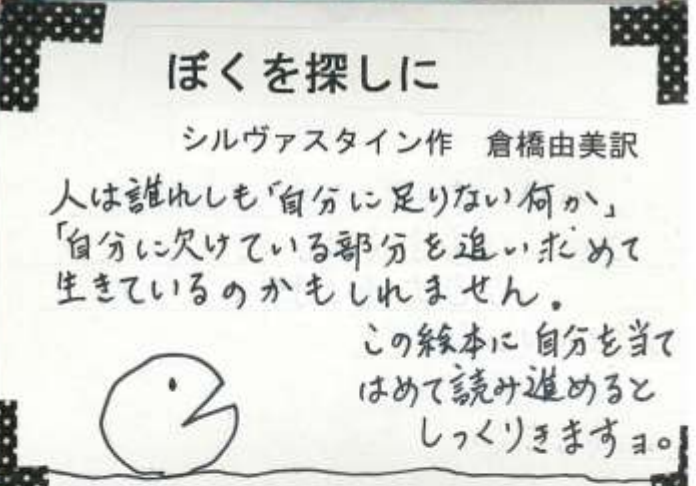 ぼくを探しに
シルヴァスタイン作 倉橋由美訳
人は誰れしも「自分に足りない何か」
「自分に欠けている部分を追い求めて
生きているのかもしれません。
この絵本に自分を当て
はめて読み進めると
しっくりきますョ。